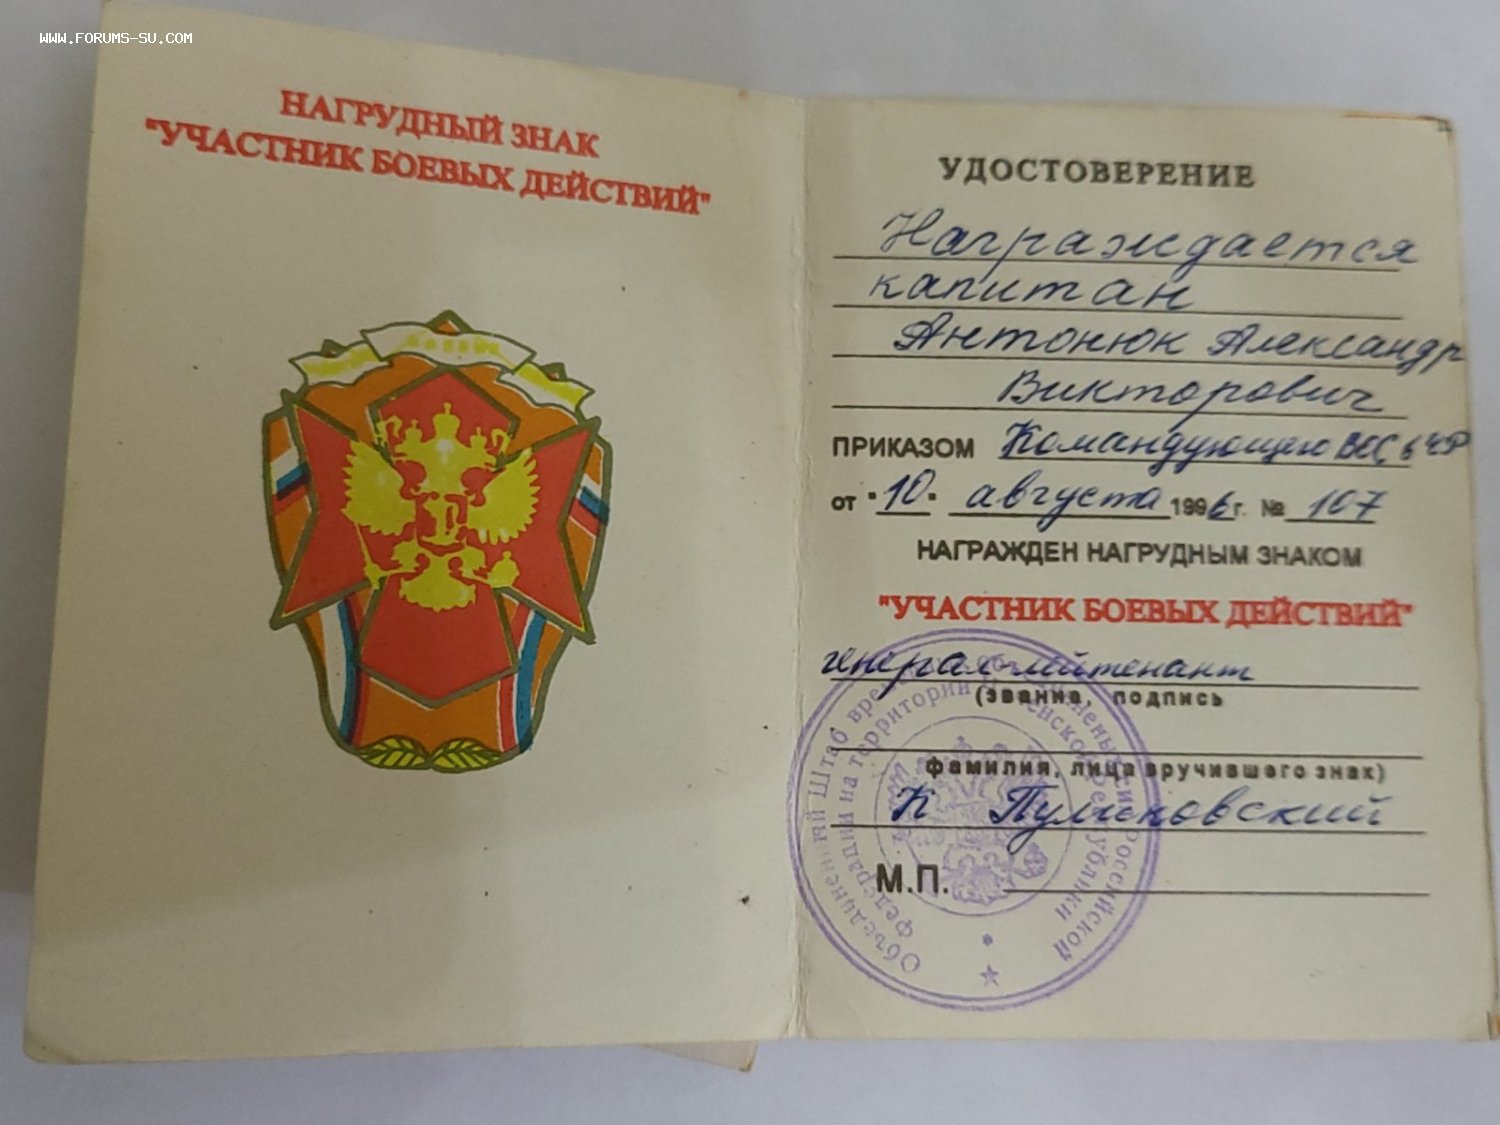 WWW.FORUMS-SU.COM
НАГРУДНЫЙ ЗНАК
"УЧАСТНИК БОЕВЫХ ДЕЙСТВИЙ"
УДОСТОВЕРЕНИЕ
Награждается
капитан
Антонюк Александр
Викторович
ПРИКАЗОМ Командующего ВОС в ЧР
от "10" августа 1996г. № 107
НАГРАЖДЕН НАГРУДНЫМ ЗНАКОМ
"УЧАСТНИК БОЕВЫХ ДЕЙСТВИЙ"
генерал-лейтенант
(звание, подпись
фамилия, лица вручившего знак)
К Пуликовский
М.П.
Объединенный Штаб российской
федерации на территории республики